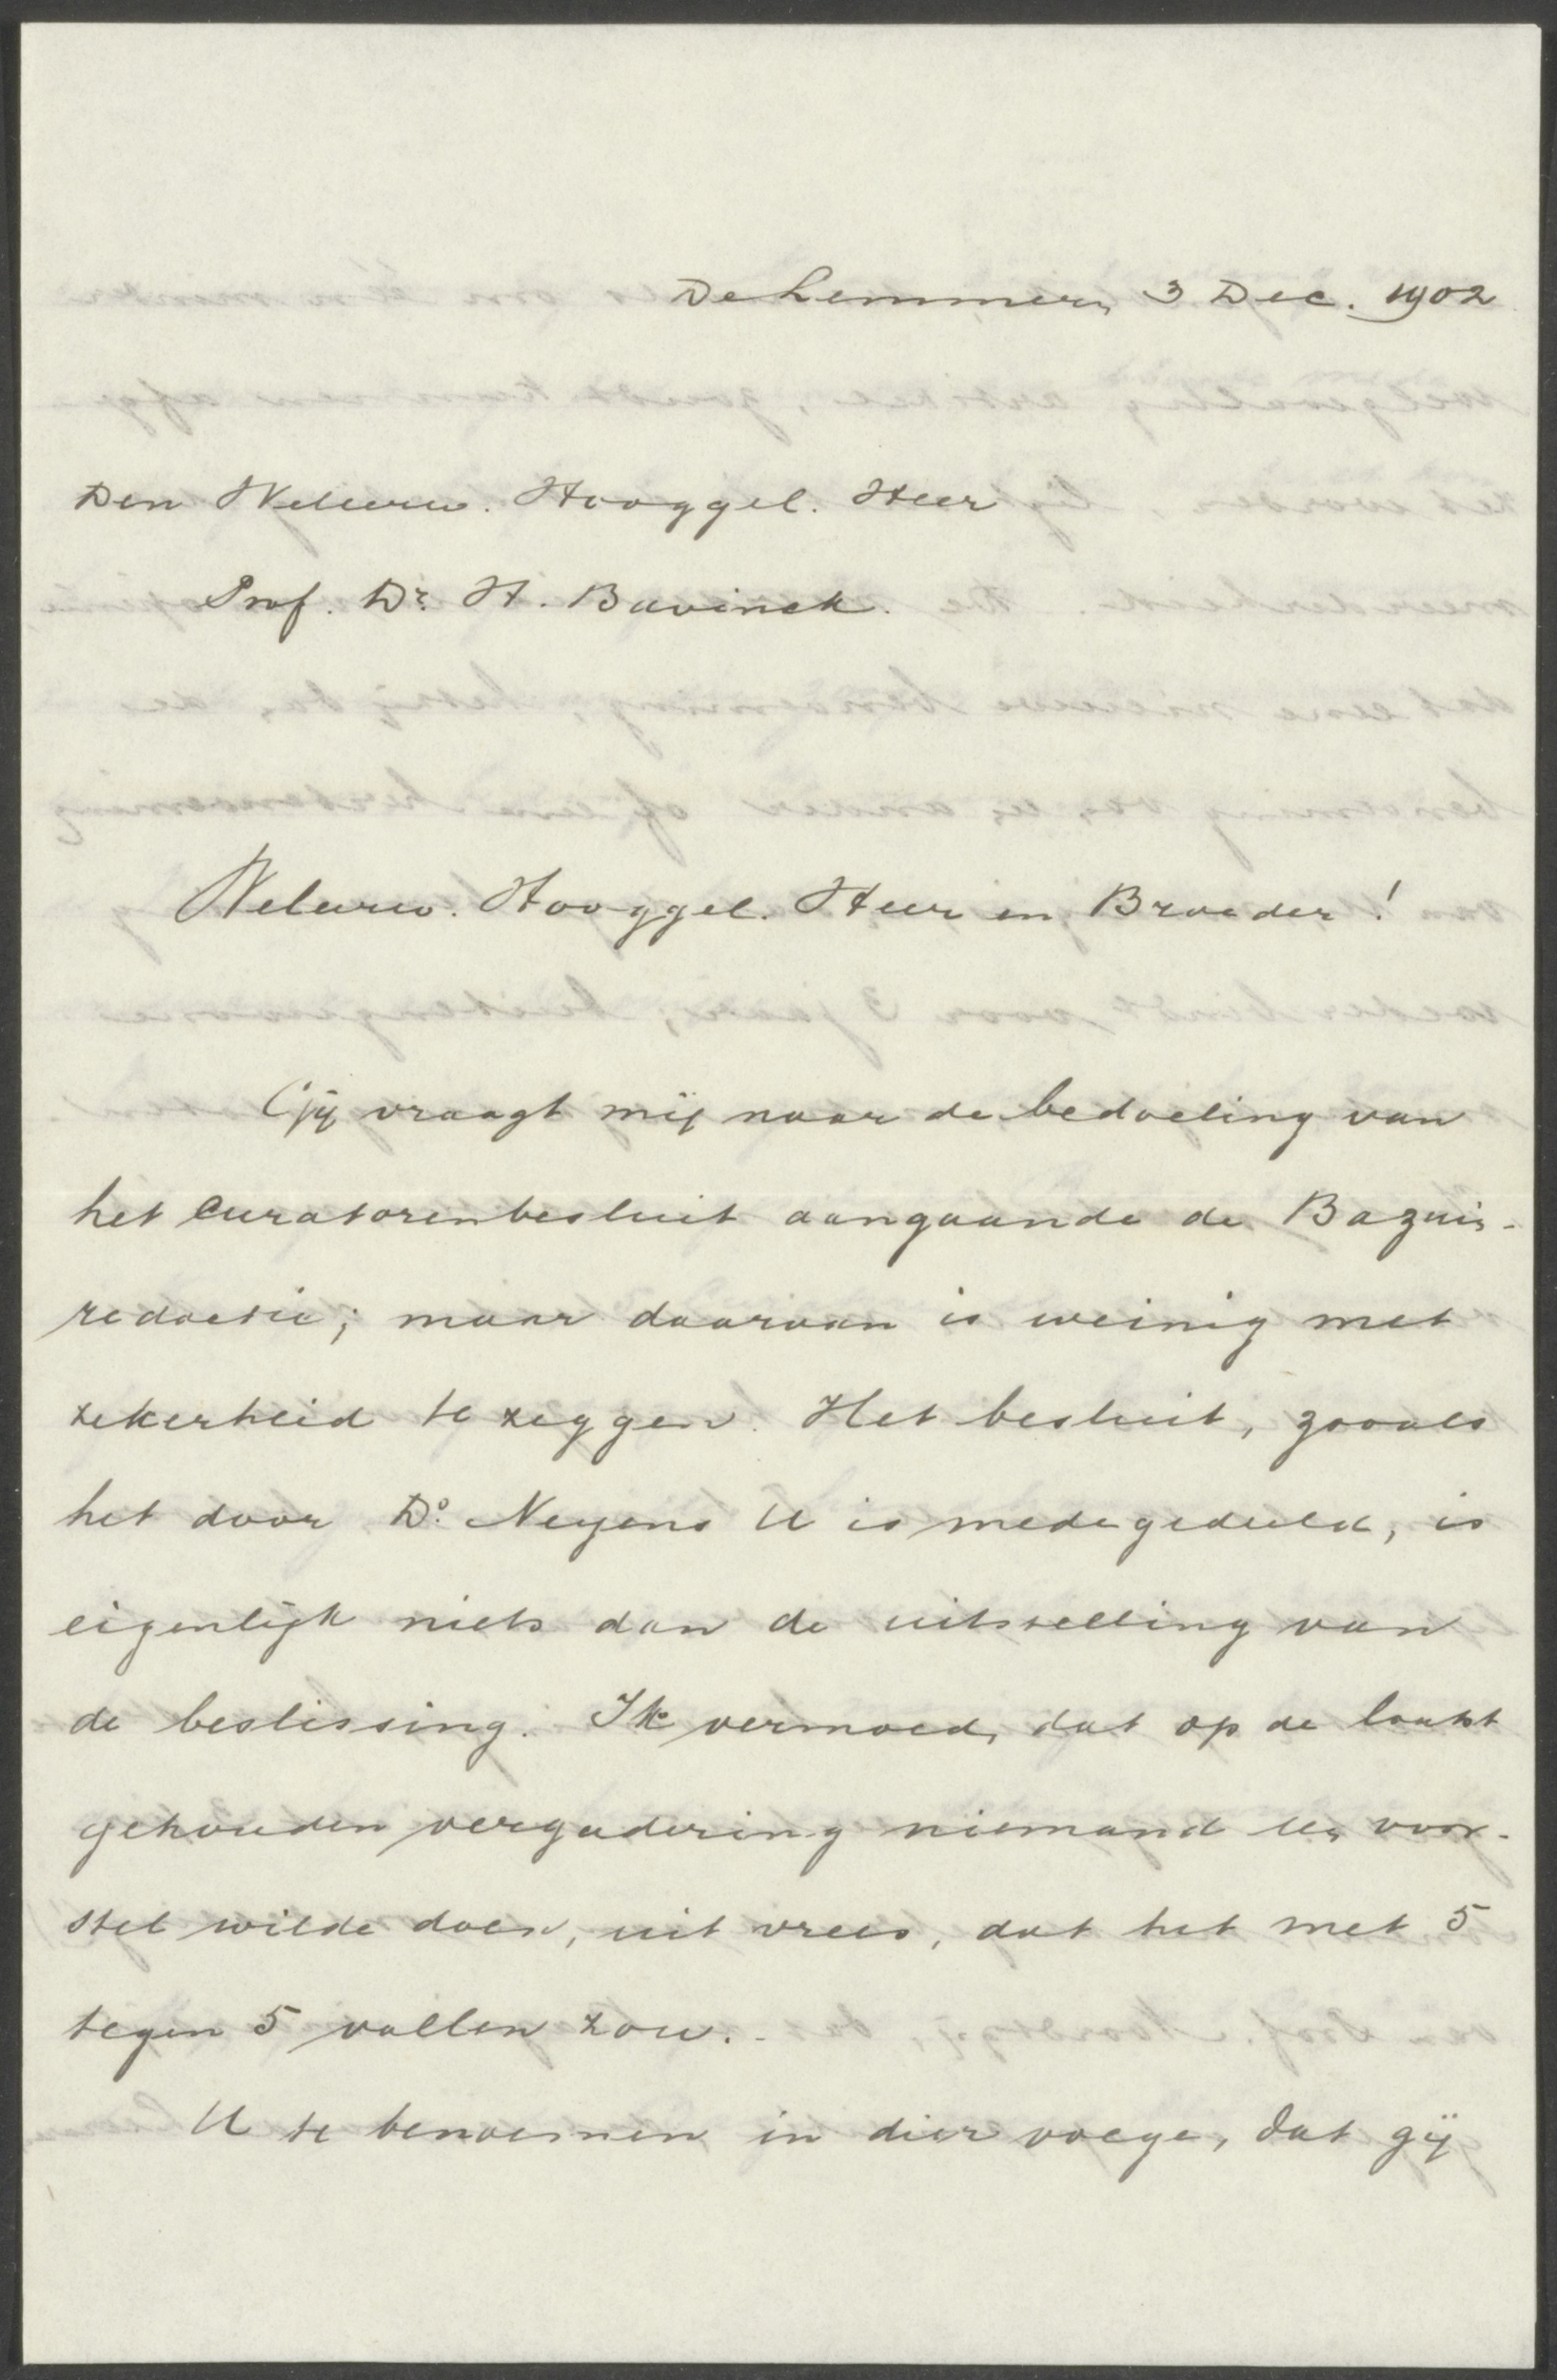 De Lemmer, 3 Dec. 1902
Den Weleerw. Hooggel. Heer
Prof. Dr. H. Bavinck.
Weleerw. Hooggel. Heer en Broeder!
Gij vraagt mij naar de bedoeling van
het Curatorenbesluit aangaande de Bazuin-
redactie; maar daarvan is weinig met
zekerheid te zeggen. Het besluit, zooals
het door Ds. Neyens U is medegedeeld, is
eigenlijk niets dan de uitstelling van
de beslissing. Ik vermoed, dat op de laatst
gehouden vergadering niemand een voor-
stel wilde doen, uit vrees, dat het met 5
tegen 5 vallen zou.
U te benoemen in dier voege, dat gij